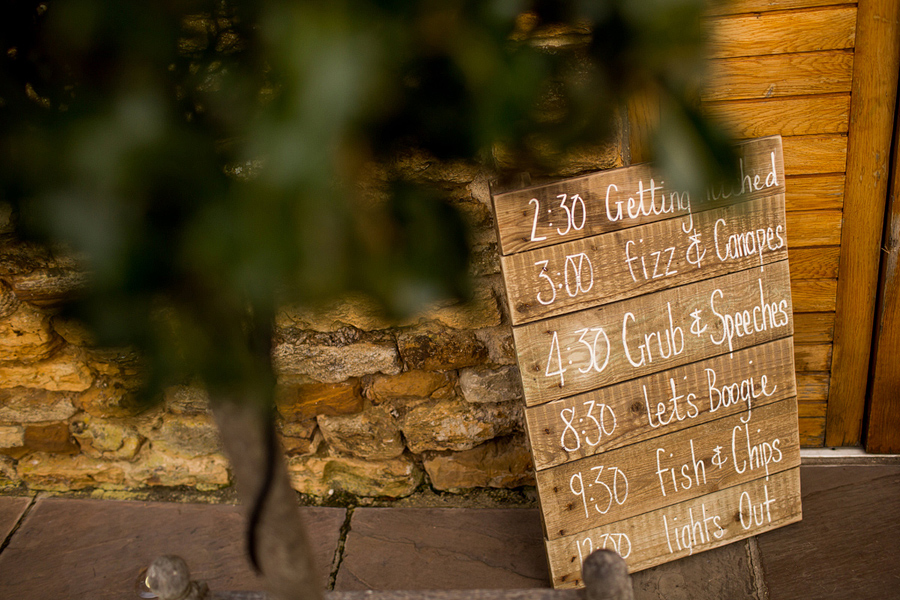 2:30 Getting
3:00 fizz & Canapes
4:30 Grub & Speeches
8:30 let's Boogie
9:30 fish & Chips
lights Out